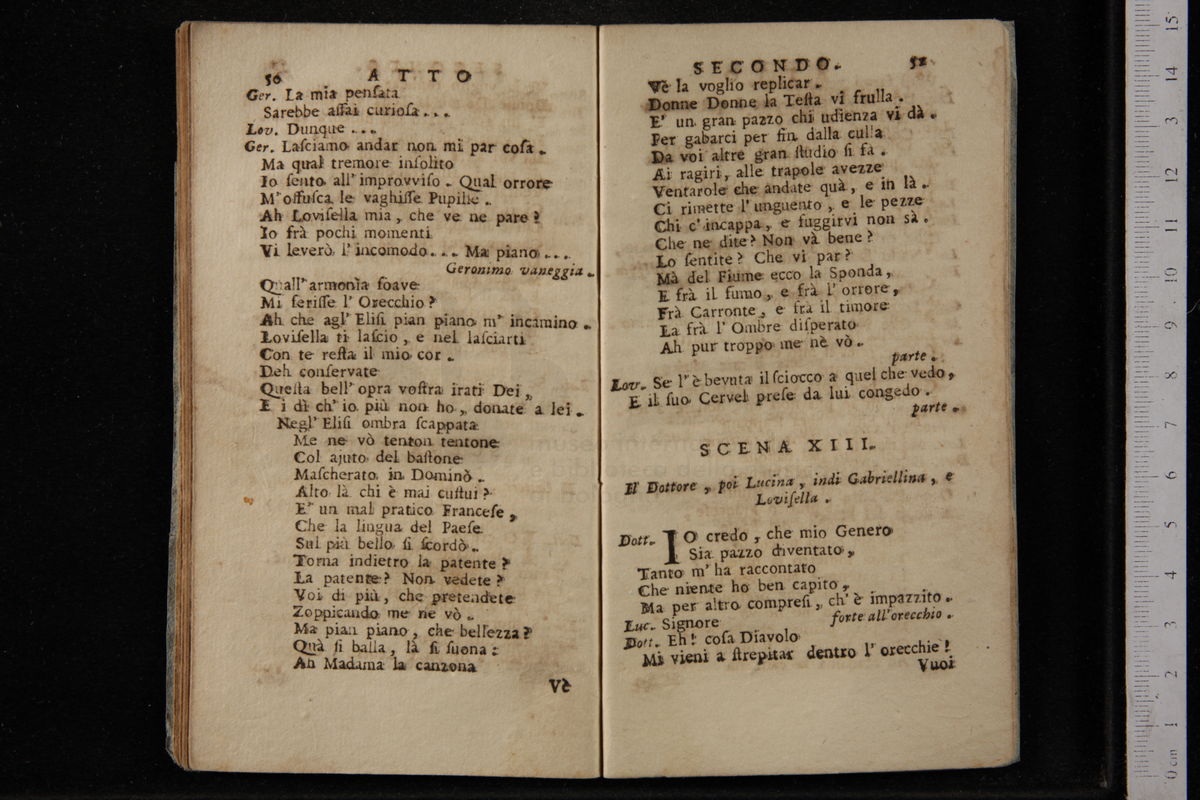 50 ATTO
Ger. La mia penſata
Sarebbe aſſai curioſa...
Lov. Dunque...
Ger. Laſciamo andar non mi par coſa.
Ma qual tremore inſolito
Io ſento all' improvviſo. Qual orrore
M' offuſca le vaghiſſe Pupille.
Ah Loviſella mia, che ve ne pare?
Io frà pochi momenti
Vi leverò l' incomodo.... Ma piano...
Geronimo vaneggia.
Quall' armonìa ſoave
Mi feriſſe l' Orecchio?
Ah che agl' Eliſi pian piano m' incamino.
Loviſella ti laſcio, e nel laſciarti
Con te reſta il mio cor.
Deh conſervate
Queſta bell' opra voſtra irati Dei,
E i dì ch' io più non ho, donate a lei.
Negl' Eliſi ombra ſcappata
Me ne vò tenton tentone
Col ajuto del baſtone
Maſcherato in Dominò.
Alto là chi è mai cuſtui?
E' un mal pratico Franceſe,
Che la lingua del Paeſe
Sul più bello ſi ſcordò.
Torna indietro la patente?
La patente? Non vedete?
Voi di più, che pretendete
Zoppicando me ne vò.
Ma pian piano, che bellezza?
Quà ſi balla, là ſi ſuona:
Ah Madama la canzona
Vè
SECONDO. 51
Vè la voglio replicar.
Donne Donne la Teſta vi frulla.
E' un gran pazzo chi udienza vi dà.
Per gabarci per fin dalla culla
Da voi altre gran ſtudio ſi fà.
Ai ragiri, alle trapole avezze
Ventarole che andate quà, e in là.
Ci rimette l' unguento, e le pezze
Chi c' incappa, e fuggirvi non sà.
Che ne dite? Non và bene?
Lo ſentite? Che vi par?
Mà del Fiume ecco la Sponda,
E frà il fumo, e frà l' orrore,
Frà Carronte, e frà il timore
La frà l' Ombre diſperato
Ah pur troppo me nè vò.
parte.
Lov. Se l' è bevuta il ſciocco a quel che vedo,
E il ſuo Cervel preſe da lui congedo.
parte.
SCENA XIII.
Il Dottore, poi Lucina, indi Gabriellina, e
Loviſella.
Dott. IO credo, che mio Genero
Sia pazzo diventato,
Tanto m' ha raccontato
Che niente ho ben capito,
Ma per altro compreſi, ch' è impazzito.
Luc. Signore forte all' orecchio.
Dott. Eh! coſa Diavolo
Mi vieni a ſtrepitar dentro l' orecchie!
Vuoi
0 cm 1 2 3 4 5 6 7 8 9 10 11 12 13 14 15